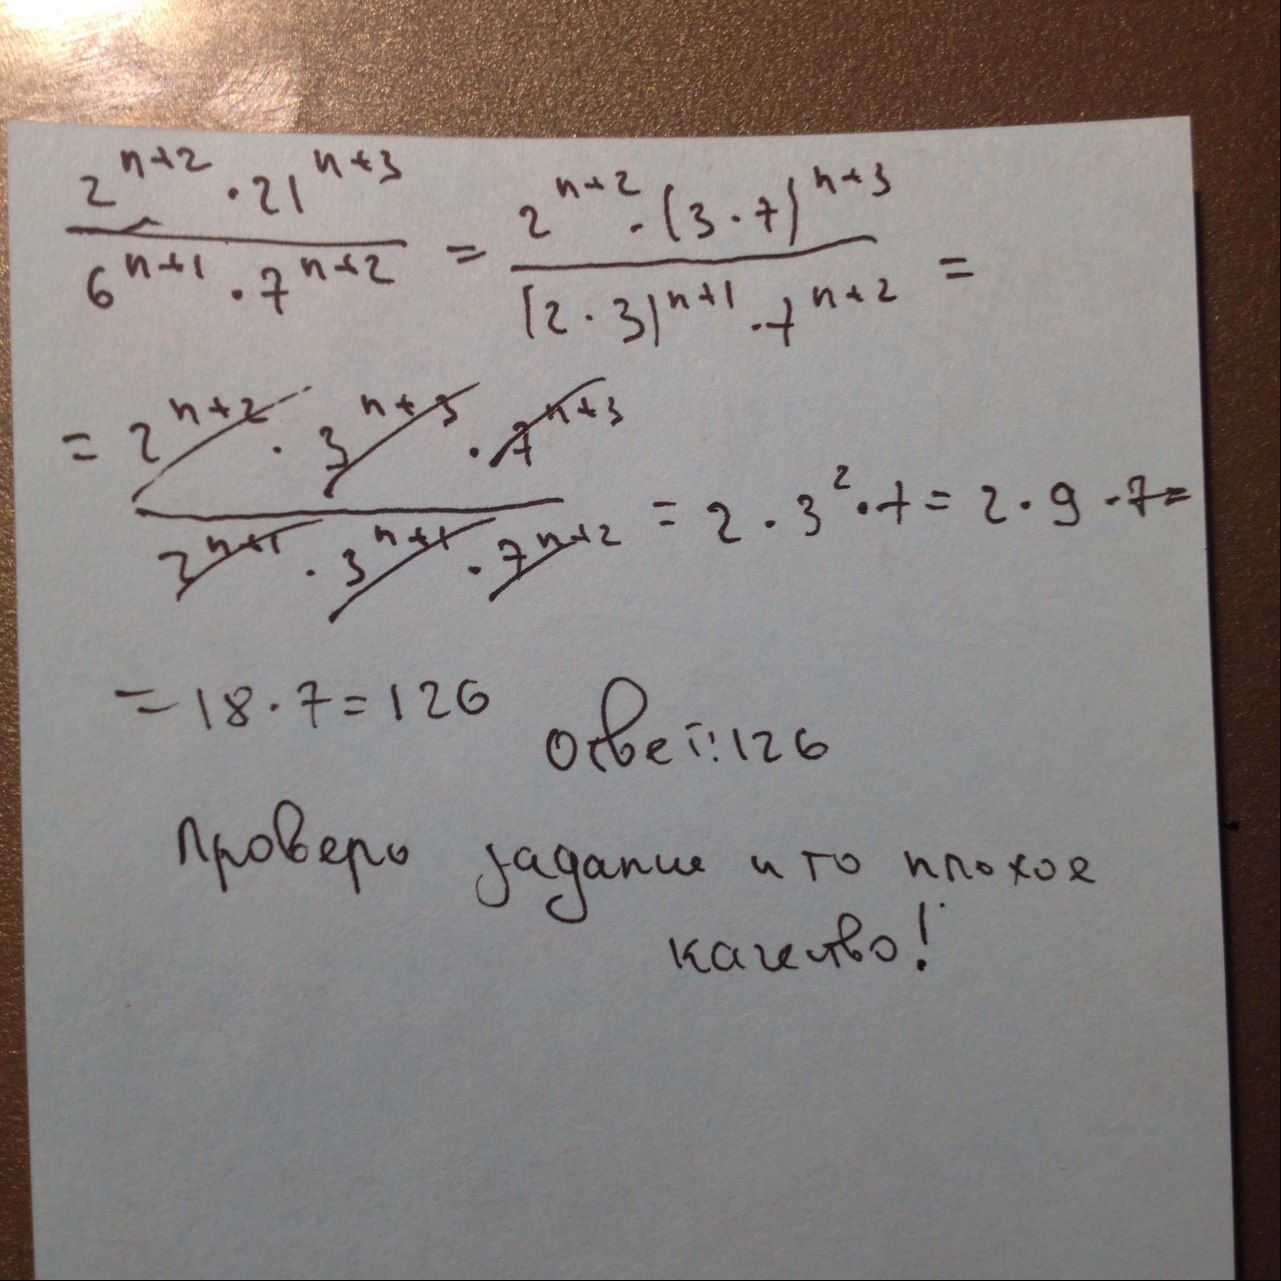 2^{n+2} · 21^{n+3} / 6^{n+1} · 7^{n+2} = 2^{n+2} · (3 · 7)^{n+3} / (2 · 3)^{n+1} · 7^{n+2} =
= 2^{n+2} · 3^{n+3} · 7^{n+3} / 2^{n+1} · 3^{n+1} · 7^{n+2} = 2 · 3^2 · 7 = 2 · 9 · 7 =
= 18 · 7 = 126
Ответ: 126
Проверь задание а то плохое
качество!